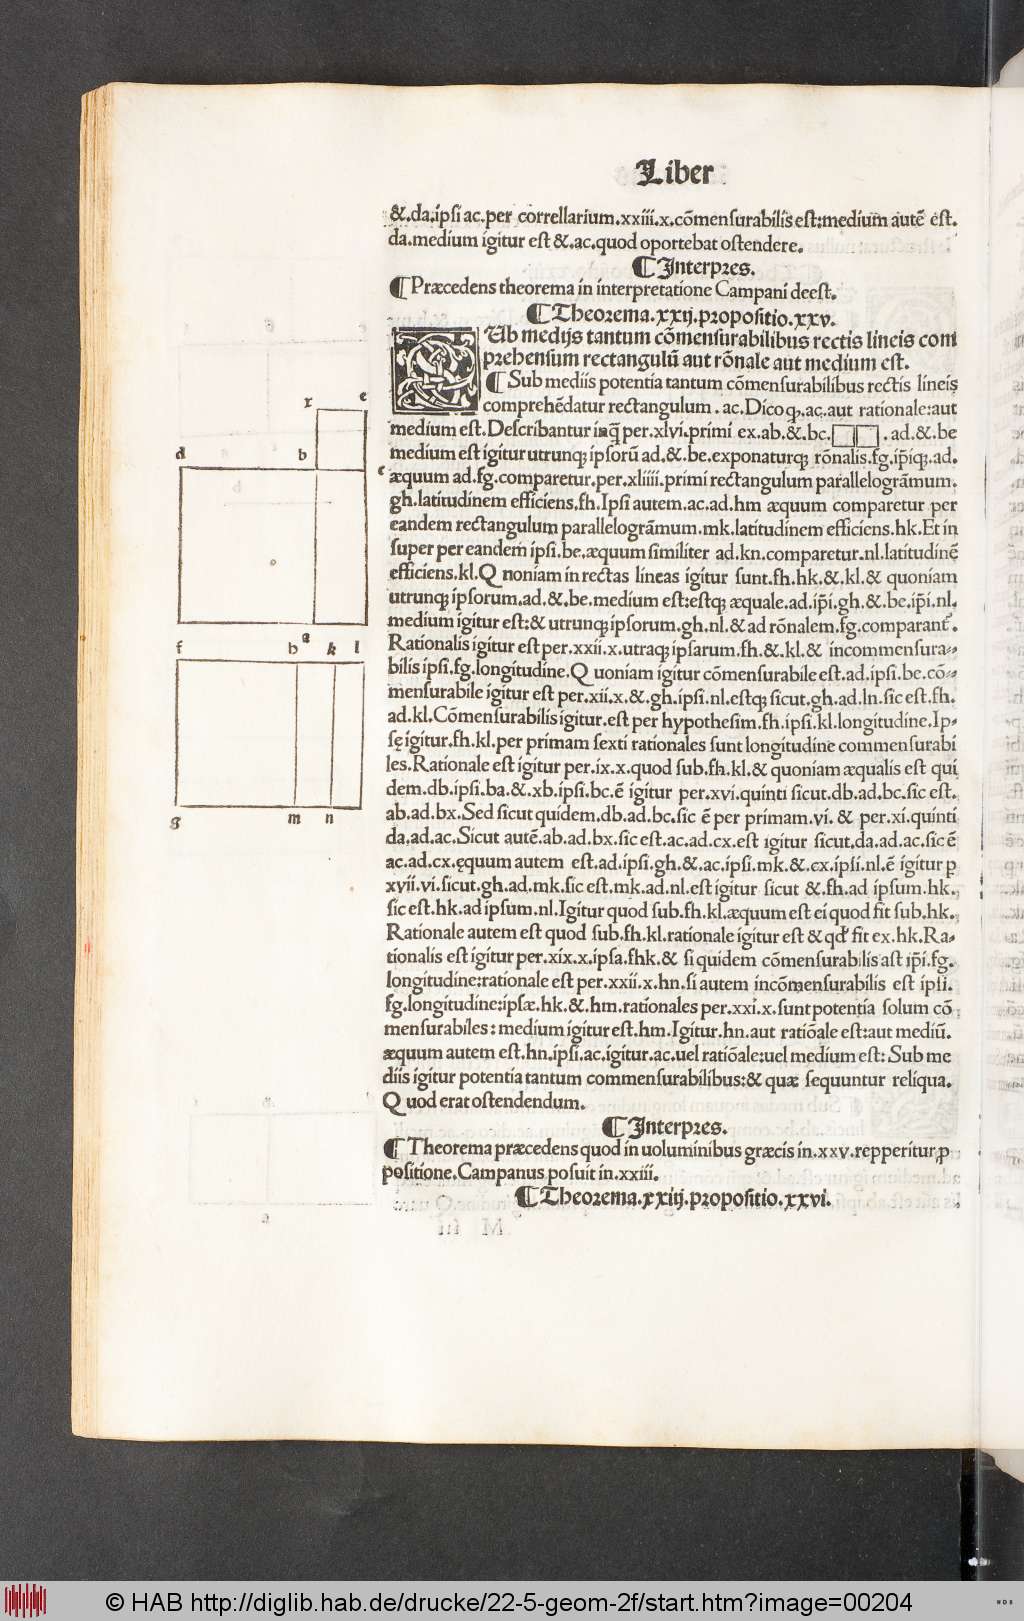 Liber
&.da.ipsi ac.per correllarium.xxiii.x.cōmensurabilis est:medium autē est.
da.medium igitur est &.ac.quod oportebat ostendere.
¶Interpres.
¶Præcedens theorema in interpretatione Campani deest.
¶Theorema.xxij.propositio.xxv.
Ub medijs tantum cōmensurabilibus rectis lineis com
prehensum rectangulū aut rōnale aut medium est.
¶Sub mediis potentia tantum cōmensurabilibus rectis lineis
comprehēdatur rectangulum.ac.Dico ꝙ.ac.aut rationale:aut
medium est.Describantur inq̃ per.xlvi.primi ex.ab.&.bc. .ad.&.be
medium est igitur utrunqꝫ ipsorū ad.&.be.exponaturqꝫ rōnalis.fg.ip̄iqꝫ.ad.
æquum ad.fg.comparetur.per.xliiii.primi rectangulum parallelogrāmum.
gh.latitudinem efficiens.fh.Ipsi autem.ac.ad.hm æquum comparetur per
eandem rectangulum parallelogrāmum.mk.latitudinem efficiens.hk.Et in
super per eandem ipsi.be.æquum similiter ad.kn.comparetur.nl.latitudinē
efficiens.kl.Q noniam in rectas lineas igitur sunt.fh.hk.&.kl.& quoniam
utrunqꝫ ipsorum.ad.&.be.medium est:estqꝫ æquale.ad.ip̄i.gh.&.be.ip̄i.nl.
medium igitur est:& utrunqꝫ ipsorum.gh.nl.& ad rōnalem.fg.comparant᷑.
Rationalis igitur est per.xxii.x.utraqꝫ ipsarum.fh.&.kl.& incommensura-
bilis ipsi.fg.longitudine.Q uoniam igitur cōmensurabile est.ad.ipsi.be.cō-
mensurabile igitur est per.xii.x.&.gh.ipsi.nl.estqꝫ sicut.gh.ad.ln.sic est.fh.
ad.kl.Cōmensurabilis igitur.est per hypothesim.fh.ipsi.kl.longitudine.Ip-
sę igitur.fh.kl.per primam sexti rationales sunt longitudine commensurabi
les.Rationale est igitur per.ix.x.quod sub.fh.kl.& quoniam æqualis est qui
dem.db.ipsi.ba.&.xb.ipsi.bc.ē igitur per.xvi.quinti sicut.db.ad.bc.sic est.
ab.ad.bx.Sed sicut quidem.db.ad.bc.sic ē per primam.vi. & per.xi.quinti
da.ad.ac.Sicut autē.ab.ad.bx.sic est.ac.ad.cx.est igitur sicut.da.ad.ac.sic ē
ac.ad.cx.ęquum autem est.ad.ipsi.gh.&.ac.ipsi.mk.&.cx.ipsi.nl.ē igitur ꝑ
xvii.vi.sicut.gh.ad.mk.sic est.mk.ad.nl.est igitur sicut &.fh.ad ipsum.hk.
sic est.hk.ad ipsum.nl.Igitur quod sub.fh.kl.æquum est ei quod fit sub.hk.
Rationale autem est quod sub.fh.kl.rationale igitur est & qď fit ex.hk.Ra-
tionalis est igitur per.xix.x.ipsa.fhk.& si quidem cōmensurabilis ast ip̄i.fg.
longitudine:rationale est per.xxii.x.hn.si autem incōmensurabilis est ipsi.
fg.longitudine:ipsæ.hk.&.hm.rationales per.xxi.x.sunt potentia solum cō
mensurabiles:medium igitur est.hm.Igitur.hn.aut ratiōale est:aut mediū.
æquum autem est.hn.ipsi.ac.igitur.ac.uel ratiōale:uel medium est:Sub me
diis igitur potentia tantum commensurabilibus:& quæ sequuntur reliqua.
Q uod erat ostendendum.
¶Interpres.
¶Theorema præcedens quod in uoluminibus græcis in.xxv.repperitur,ꝓ
positione.Campanus posuit in.xxiii.
¶Theorema.xxiij.propositio.xxvi.
x e
d b c
a
f h k l
g m n
© HAB http://diglib.hab.de/drucke/22-5-geom-2f/start.htm?image=00204